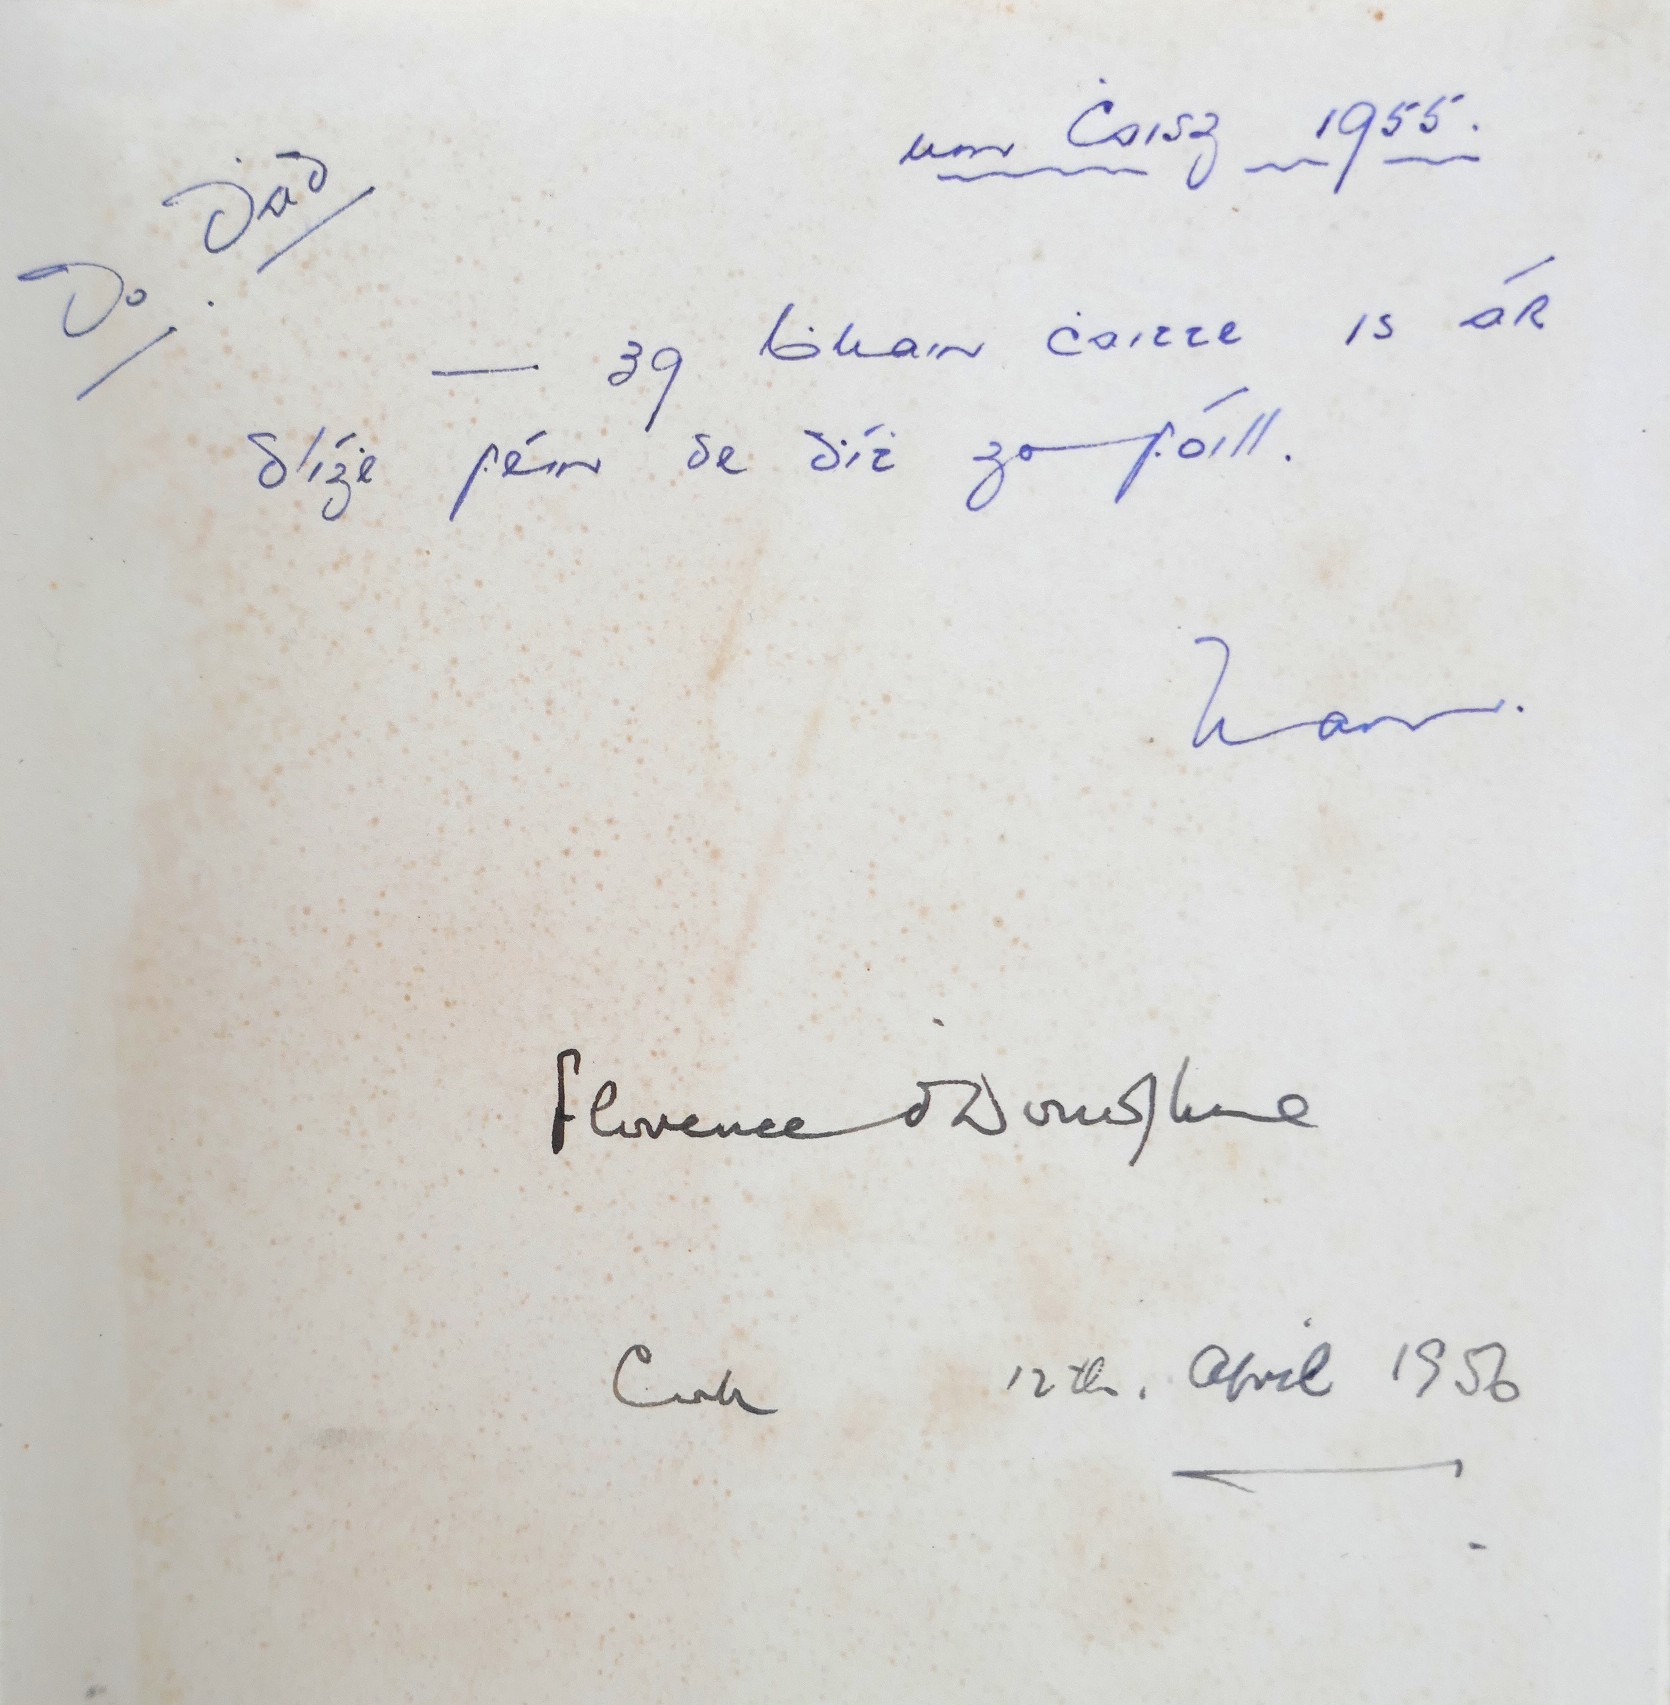 um Ċaisg 1955.
Do Ḋad
— 39 ḃliain ċaitte is ár
dlíġe féin de ḋíṫ go fóill.
Liam.
Florence O'Donoghue
Cork 12th. April 1956